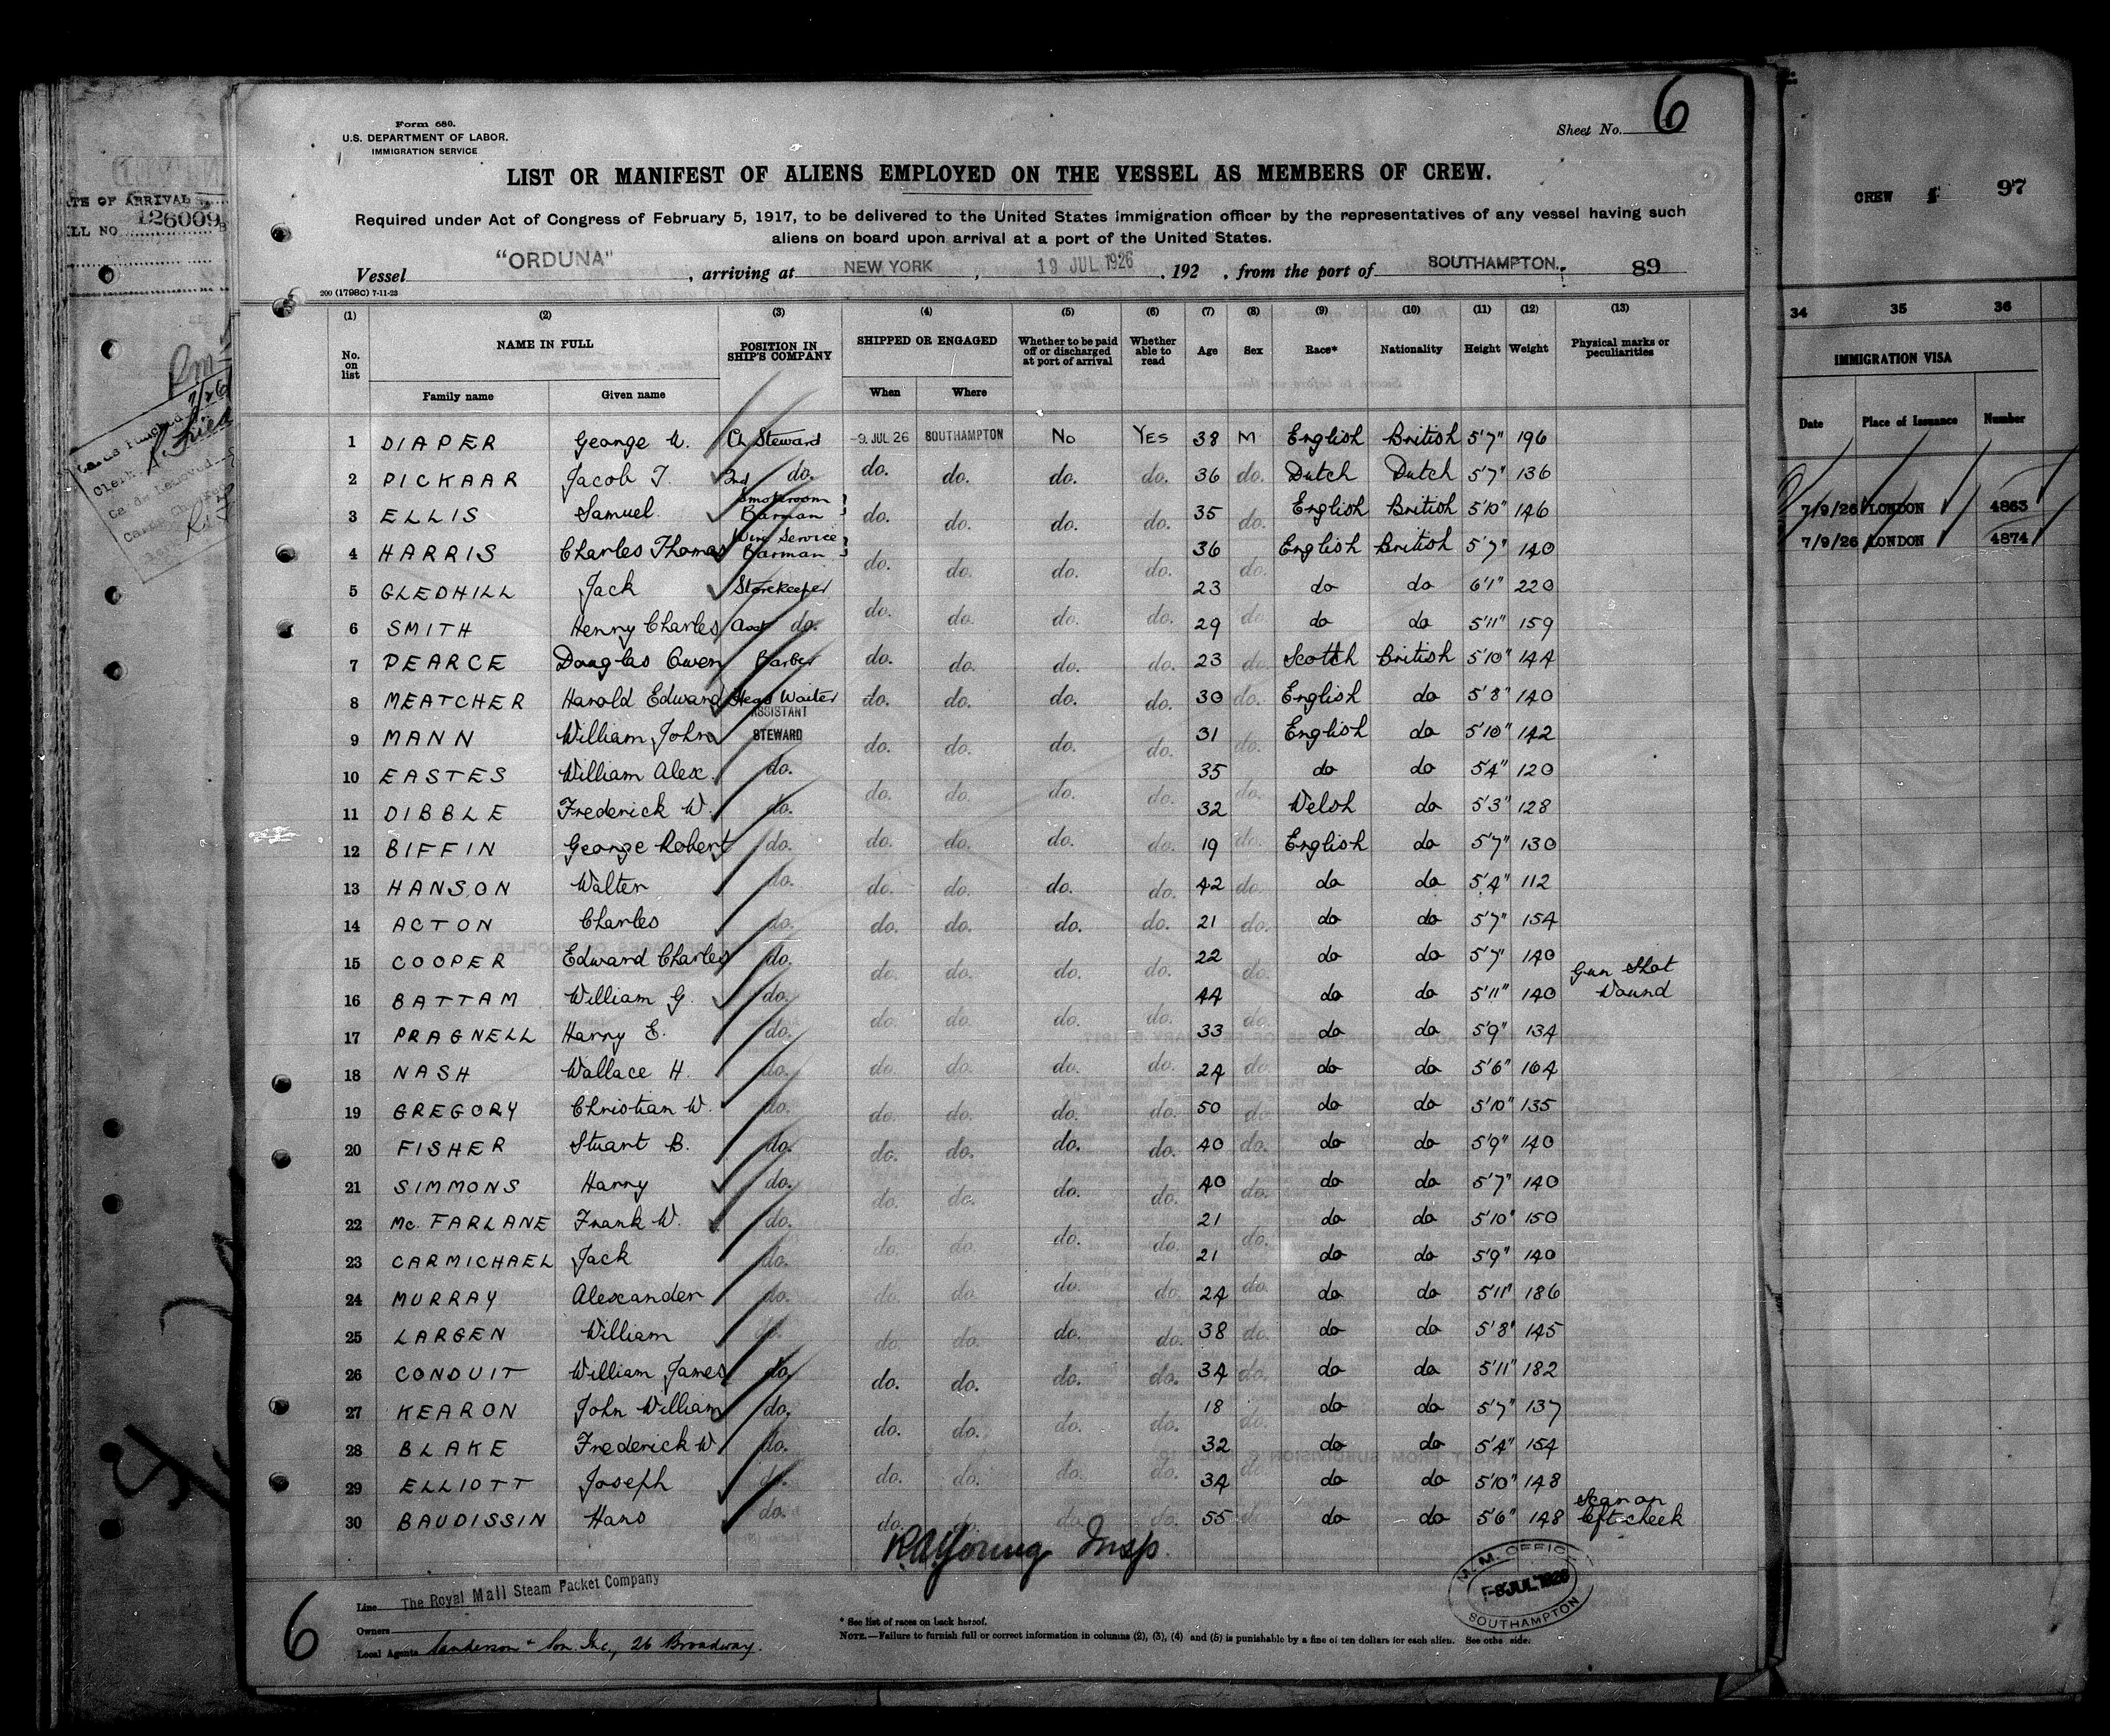 Form 680.
U.S. DEPARTMENT OF LABOR.
IMMIGRATION SERVICE
Sheet No. 6
LIST OR MANIFEST OF ALIENS EMPLOYED ON THE VESSEL AS MEMBERS OF CREW.
Required under Act of Congress of February 5, 1917, to be delivered to the United States immigration officer by the representatives of any vessel having such
aliens on board upon arrival at a port of the United States.
Vessel "ORDUNA", arriving at NEW YORK, 19 JUL 1926, 192 , from the port of SOUTHAMPTON. 89
200 (1798C) 7-11-23
(1) (2) (3) (4) (5) (6) (7) (8) (9) (10) (11) (12) (13)
No. on list NAME IN FULL POSITION IN SHIP'S COMPANY SHIPPED OR ENGAGED Whether to be paid off or discharged at port of arrival Whether able to read Age Sex Race* Nationality Height Weight Physical marks or peculiarities
Family name Given name When Where
1 DIAPER George W. Ch Steward -9. JUL 26 SOUTHAMPTON No YES 38 M English British 5'7" 196
2 PICKAAR Jacob T. 2nd do. do. do. do. do. 36 do. Dutch Dutch 5'7" 136
3 ELLIS Samuel Smokeroom Barman do. do. do. do. 35 do. English British 5'10" 146
4 HARRIS Charles Thomas Wine Service Barman do. do. do. do. 36 do. English British 5'7" 140
5 GLEDHILL Jack Storekeeper 23 do do 6'1" 220
6 SMITH Henry Charles Asst do. do. do. do. do. 29 do. do do 5'11" 159
7 PEARCE Douglas Owen Barber do. do. do. do. 23 do. Scotch British 5'10" 144
8 MEATCHER Harold Edward Head Waiter do. do. do. do. 30 do. English do 5'8" 140
9 MANN William John ASSISTANT STEWARD do. do. do. do. 31 do. English do 5'10" 142
10 EASTES William Alex. do. 35 do do 5'4" 120
11 DIBBLE Frederick W. do. do. do. do. do. 32 do. Welsh do 5'3" 128
12 BIFFIN George Robert do. do. do. do. do. 19 do. English do 5'7" 130
13 HANSON Walter do. do. do. do. do. 42 do. do do 5'4" 112
14 ACTON Charles do. do. do. do. do. 21 do. do do 5'7" 154
15 COOPER Edward Charles do. do. do. do. do. 22 do. do do 5'7" 140
16 BATTAM William G. do. do. do. do. do. 44 do. do do 5'11" 140 Gun Shot Wound
17 PRAGNELL Harry E. do. 33 do do 5'9" 134
18 NASH Wallace H. do. do. do. do. do. 24 do. do do 5'6" 164
19 GREGORY Christian W. do. do. do. do. do. 50 do. do do 5'10" 135
20 FISHER Stuart B. do. do. do. do. do. 40 do. do do 5'9" 140
21 SIMMONS Harry do. do. do. do. do. 40 do. do do 5'7" 140
22 Mc. FARLANE Frank W. do. do. do. do. do. 21 do. do do 5'10" 150
23 CARMICHAEL Jack do. 21 do do 5'9" 140
24 MURRAY Alexander do. do. do. do. do. 24 do. do do 5'11" 186
25 LARGEN William do. do. do. do. do. 38 do. do do 5'8" 145
26 CONDUIT William James do. do. do. do. do. 34 do. do do 5'11" 182
27 KEARON John William do. do. do. do. do. 18 do. do do 5'7" 137
28 BLAKE Frederick W. do. 32 do do 5'4" 154
29 ELLIOTT Joseph do. do. do. do. do. 34 do. do do 5'10" 148
30 BAUDISSIN Hans do. do. do. do. do. 55 do do do 5'6" 148 Scar on left cheek
R A Young Insp.
Line The Royal Mail Steam Packet Company
Owners
Local Agents Sanderson & Son Inc, 26 Broadway.
6
* See list of races on back hereof.
NOTE.—Failure to furnish full or correct information in columns (2), (3), (4) and (5) is punishable by a fine of ten dollars for each alien. See other side.
M.M. OFFICE
JUL 1926
SOUTHAMPTON
DATE OF ARRIVAL
126009
CREW 97
34 35 36
IMMIGRATION VISA
Date Place of Issuance Number
7/9/26 LONDON 4863
7/9/26 LONDON 4874